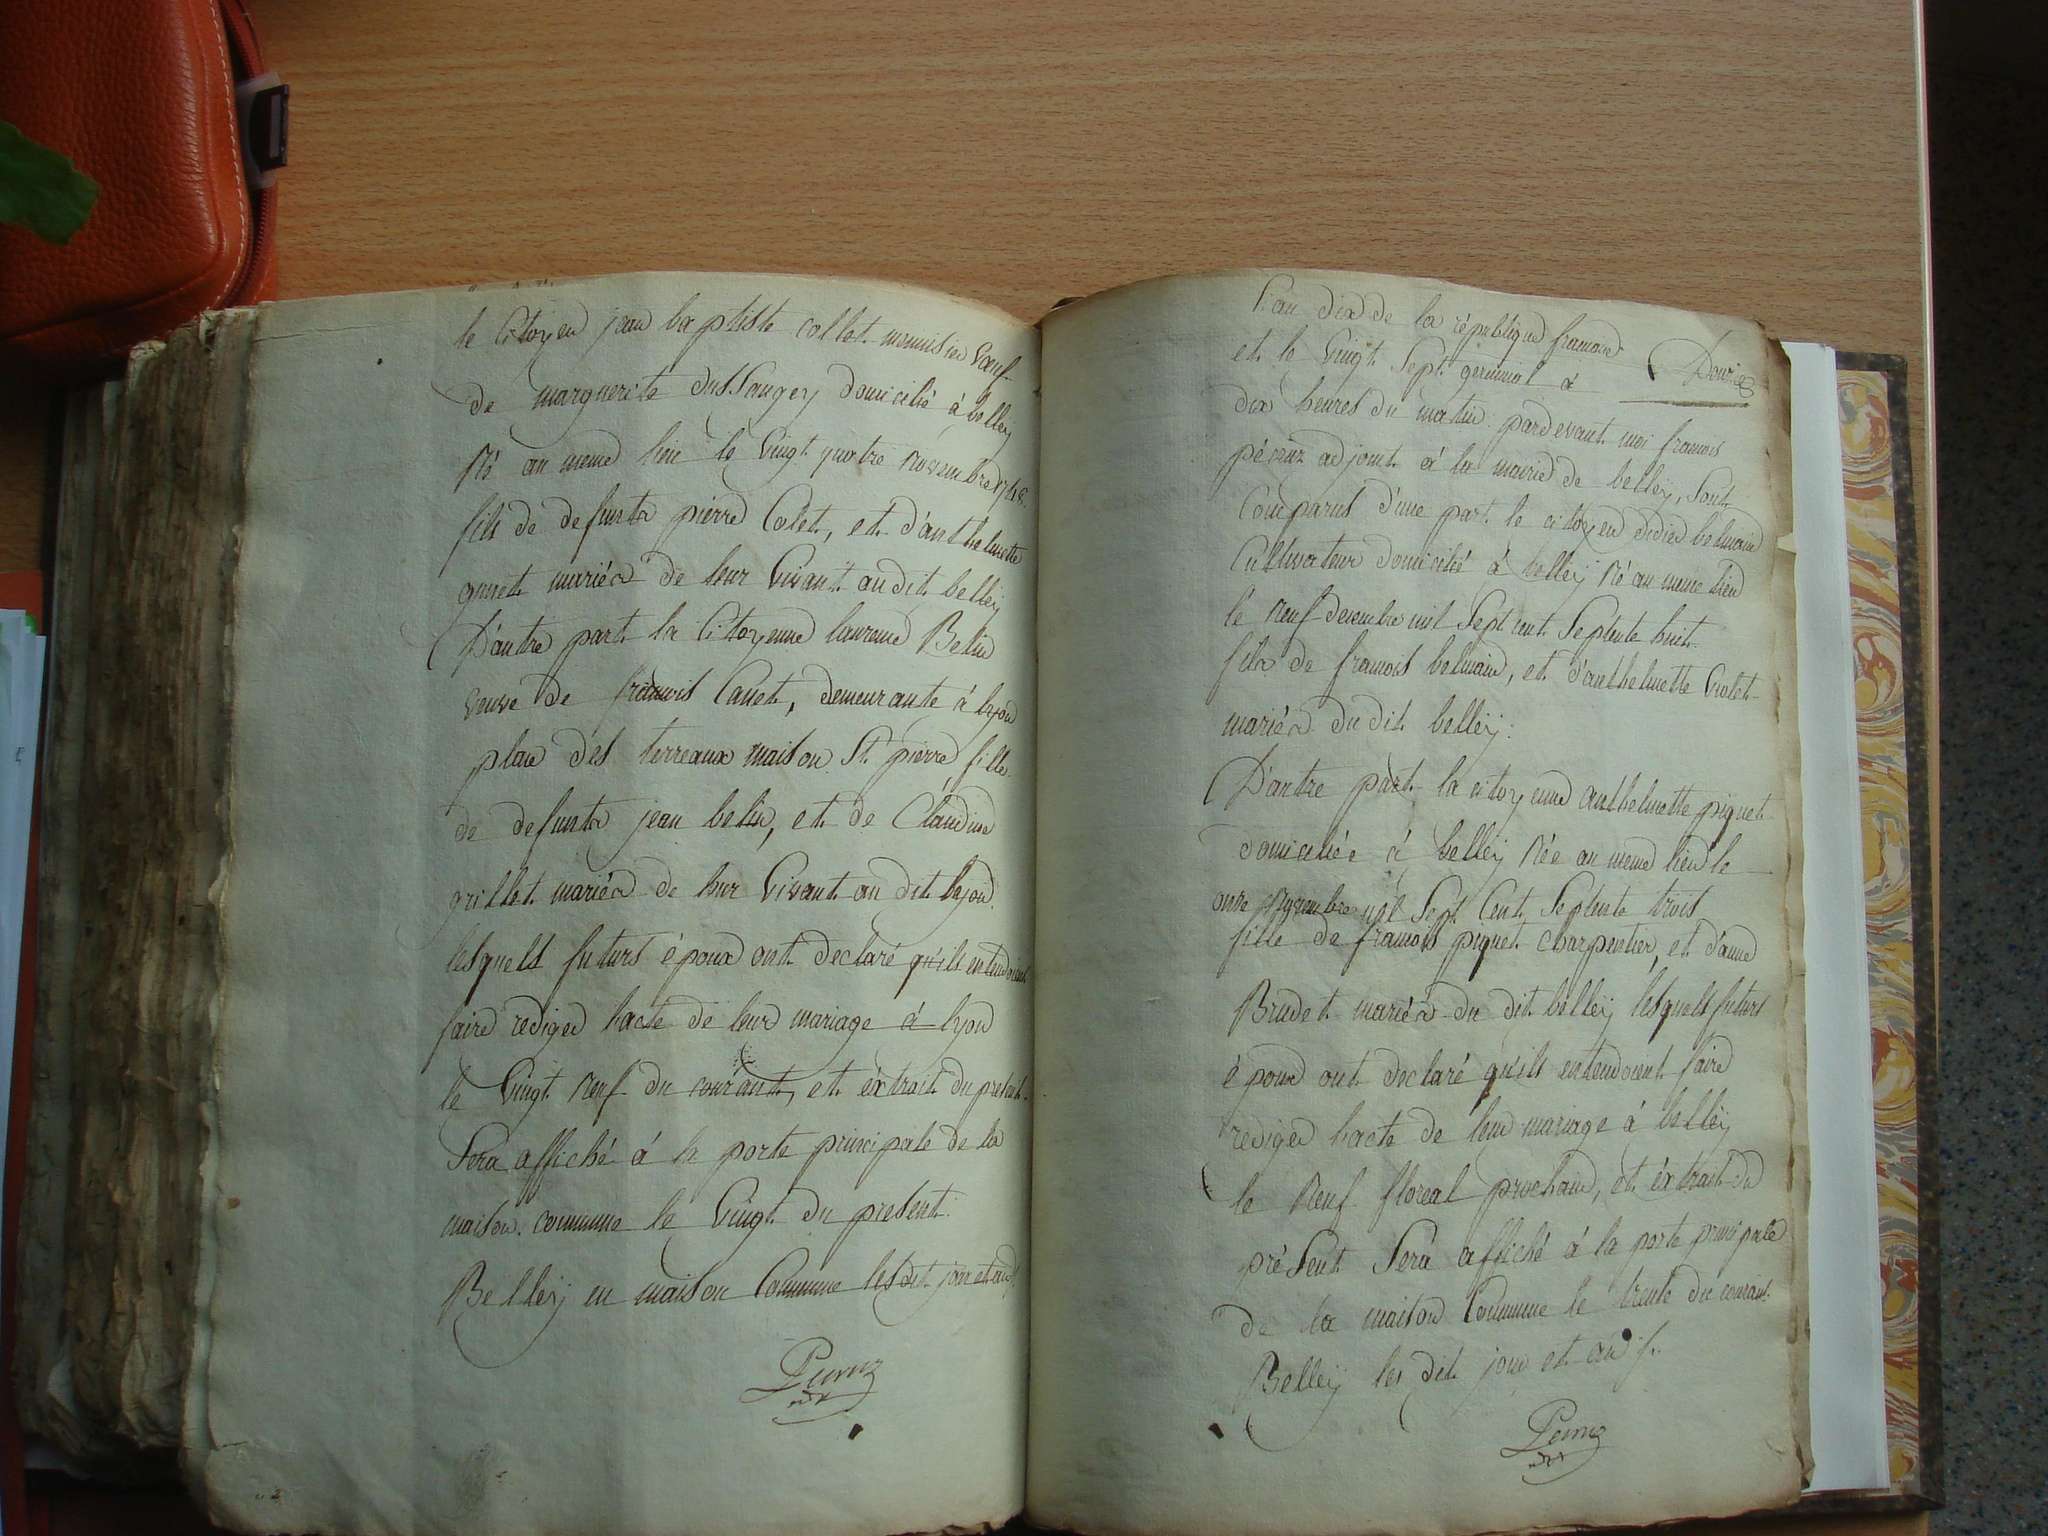 le Citoyen jean baptiste collet menuisier Vœuf
de marguerite dussaugey domicilié à belley
Né au meme lieu le Vingt quatre Novembre 1748.
fils de defunts pierre Colet, et d'anthelmette
guiet mariés de leur Vivant audit belley
D'autre part la Citoyenne laurence Belin
veuve de francois Canet, demeurante à lyon
place des terreaux maison St. pierre, fille
de defunts jean belin, et de Claudine
grillet mariés de leur Vivant au dit lyon
lesquels futurs époux ont declaré qu'ils entendoient
faire rediger l'acte de leur mariage à lyon
le Vingt Neuf du courant, et éxtrait du present
Sera affiché à la porte principale de la
maison commune le Vingt du present
Belley en maison Commune les dit jour et an
L'an dix de la république francaise
et le Vingt Sept germinal à
dix heures du matin pardevant moi francois
adjoint à la mairie de belley, Sont
Comparus d'une part le citoyen didier belmain
Cultivateur domicilié à belley Né au meme lieu
le Neuf decembre mil Sept cent Septente huit
fils de francois belmain, et d'anthelmette Violet
mariés du dit belley.
D'autre part la citoyenne anthelmette piquet
domiciliée à belley Née au meme lieu le
onze Novembre mil Sept Cent Septente trois
fille de francois piquet charpentier, et d'anne
Brudet mariés du dit belley lesquels futurs
époux ont declaré qu'ils entendoient faire
rediger l'acte de leur mariage à belley
le Neuf floreal prochain, et éxtrait du
présent Sera affiché à la porte principale
de la maison Commune le trente du courant
Belley les dit jour et an